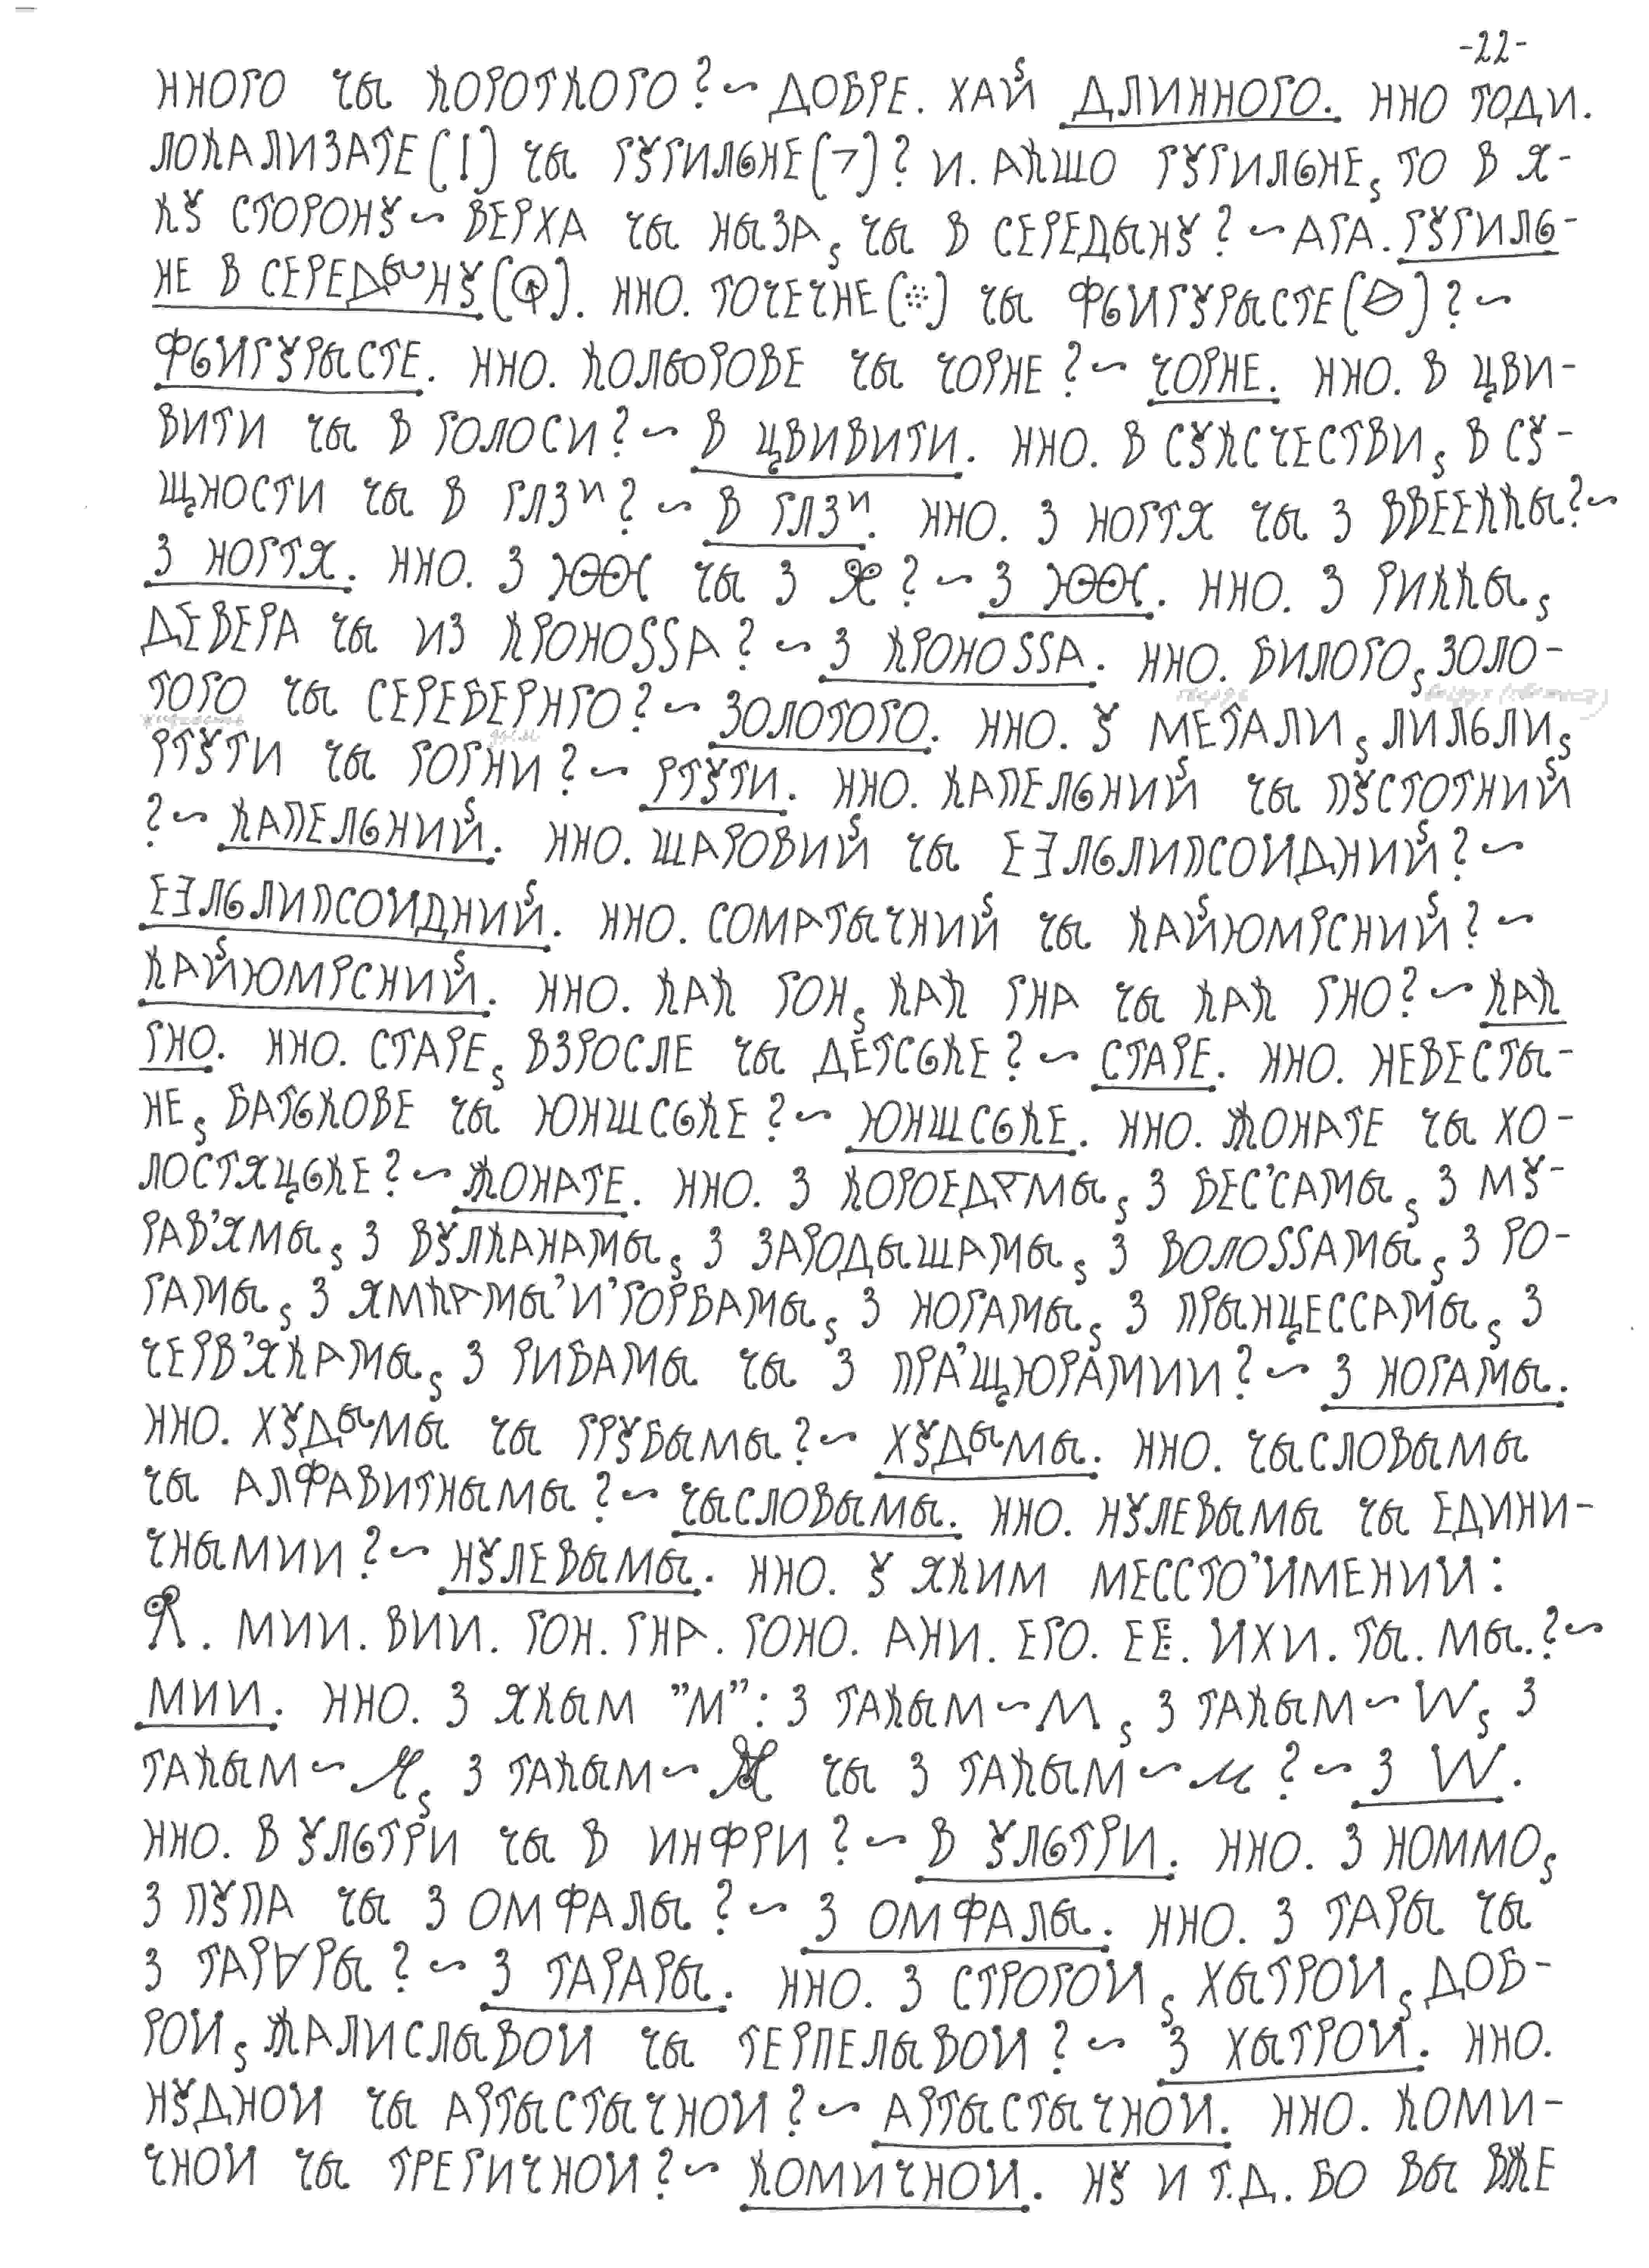 -22-
ННОГО ЧЫ КОРОТКОГО?~ ДОБРЕ. ХАЙ ДЛИННОГО. ННО ТОДИ.
ЛОКАЛИЗАТЕ(|) ЧЫ ГУГИЛЬНЕ(¬)? И. АКШО ГУГИЛЬНЕ, ТО В Я-
КУ СТОРОНУ~ ВЕРХА ЧЫ НЫЗА, ЧЫ В СЕРЕДЫНУ?~ АГА. ГУГИЛЬ-
НЕ В СЕРЕДЫНУ( ). ННО. ТОЧЕЧНЕ( ) ЧЫ ФЬИГУРЫСТЕ( )?~
ФЬИГУРЫСТЕ. ННО. КОЛЬОРОВЕ ЧЫ ЧОРНЕ?~ ЧОРНЕ. ННО. В ЦВИ-
ВИТИ ЧЫ В ГОЛОСИ?~ В ЦВИВИТИ. ННО. В СУКСЧЕСТВИ, В СУ-
ЩНОСТИ ЧЫ В ГЛЗИ?~ В ГЛЗИ. ННО. З НОГТЯ ЧЫ З ВВЕЕККЫ?~
З НОГТЯ. ННО. З ЧЫ З ?~ З . ННО. З РИККЫ,
ДЕВЕРА ЧЫ ИЗ КРОНОSSА?~ З КРОНОSSА. ННО. БИЛОГО, ЗОЛО-
ТОГО ЧЫ СЕРЕБЕРНГО?~ ЗОЛОТОГО. ННО. У МЕТАЛИ, ЛИЛЬЛИ,
РТУТИ ЧЫ ГОГНИ?~ РТУТИ. ННО. КАПЕЛЬНИЙ ЧЫ ПУСТОТНИЙ
?~ КАПЕЛЬНИЙ. ННО. ШАРОВИЙ ЧЫ ЕƎЛЬЛИПСОИДНИЙ?~
ЕƎЛЬЛИПСОИДНИЙ. ННО. СОМАТЫЧНИЙ ЧЫ КАЙЮМРСНИЙ?~
КАЙЮМРСНИЙ. ННО. КАК ГОН, КАК ГНА ЧЫ КАК ГНО?~ КАК
ГНО. ННО. СТАРЕ, ВЗРОСЛЕ ЧЫ ДЕТСЬКЕ?~ СТАРЕ. ННО. НЕВЕСТЫ-
НЕ, БАТЬКОВЕ ЧЫ ЮНШСЬКЕ?~ ЮНШСЬКЕ. ННО. ЖОНАТЕ ЧЫ ХО-
ЛОСТЯЦЬКЕ?~ ЖОНАТЕ. ННО. З КОРОЕДАМЫ, З БЕС'САМЫ, З МУ-
РАВ'ЯМЫ, З ВУЛКАНАМЫ, З ЗАРОДЫШАМЫ, З ВОЛОSSАМЫ, З РО-
ГАМЫ, З ЯМКАМЫ'И'ГОРБАМЫ, З НОГАМЫ, З ПРЫНЦЕССАМЫ, З
ЧЕРВ'ЯКАМЫ, З РИБАМЫ ЧЫ З ПРА'ЩЮРАМИИ?~ З НОГАМЫ.
ННО. ХУДЫМЫ ЧЫ ГРУБЫМЫ?~ ХУДЫМЫ. ННО. ЧЫСЛОВЫМЫ
ЧЫ АЛФАВИТНЫМЫ?~ ЧЫСЛОВЫМЫ. ННО. НУЛЕВЫМЫ ЧЫ ЕДИНИ-
ЧНЫМИИ?~ НУЛЕВЫМЫ. ННО. У ЯКИМ МЕССТО'ИМЕНИИ:
Я. МИИ. ВИИ. ГОН. ГНА. ГОНО. АНИ. ЕГО. ЕЁ. ИХИ. ТЫ. МЫ.?~
МИИ. ННО. З ЯКЫМ "М": З ТАКЫМ~М, З ТАКЫМ~W, З
ТАКЫМ~М, З ТАКЫМ~Ж ЧЫ З ТАКЫМ~м?~ З W.
ННО. В УЛЬТРИ ЧЫ В ИНФРИ?~ В УЛЬТРИ. ННО. З НОММО,
З ПУПА ЧЫ З ОМФАЛЫ?~ З ОМФАЛЫ. ННО. З ТАРЫ ЧЫ
З ТАР∀РЫ?~ З ТАРАРЫ. ННО. З СТРОГОИ, ХЫТРОИ, ДОБ-
РОИ, ЖАЛИСЛЫВОИ ЧЫ ТЕРПЕЛЫВОИ?~ З ХЫТРОИ. ННО.
НУДНОИ ЧЫ АРТЫСТЫЧНОИ?~ АРТЫСТЫЧНОИ. ННО. КОМИ-
ЧНОИ ЧЫ ТРЕГИЧНОИ?~ КОМИЧНОИ. НУ И Т.Д. БО ВЫ ВЖЕ